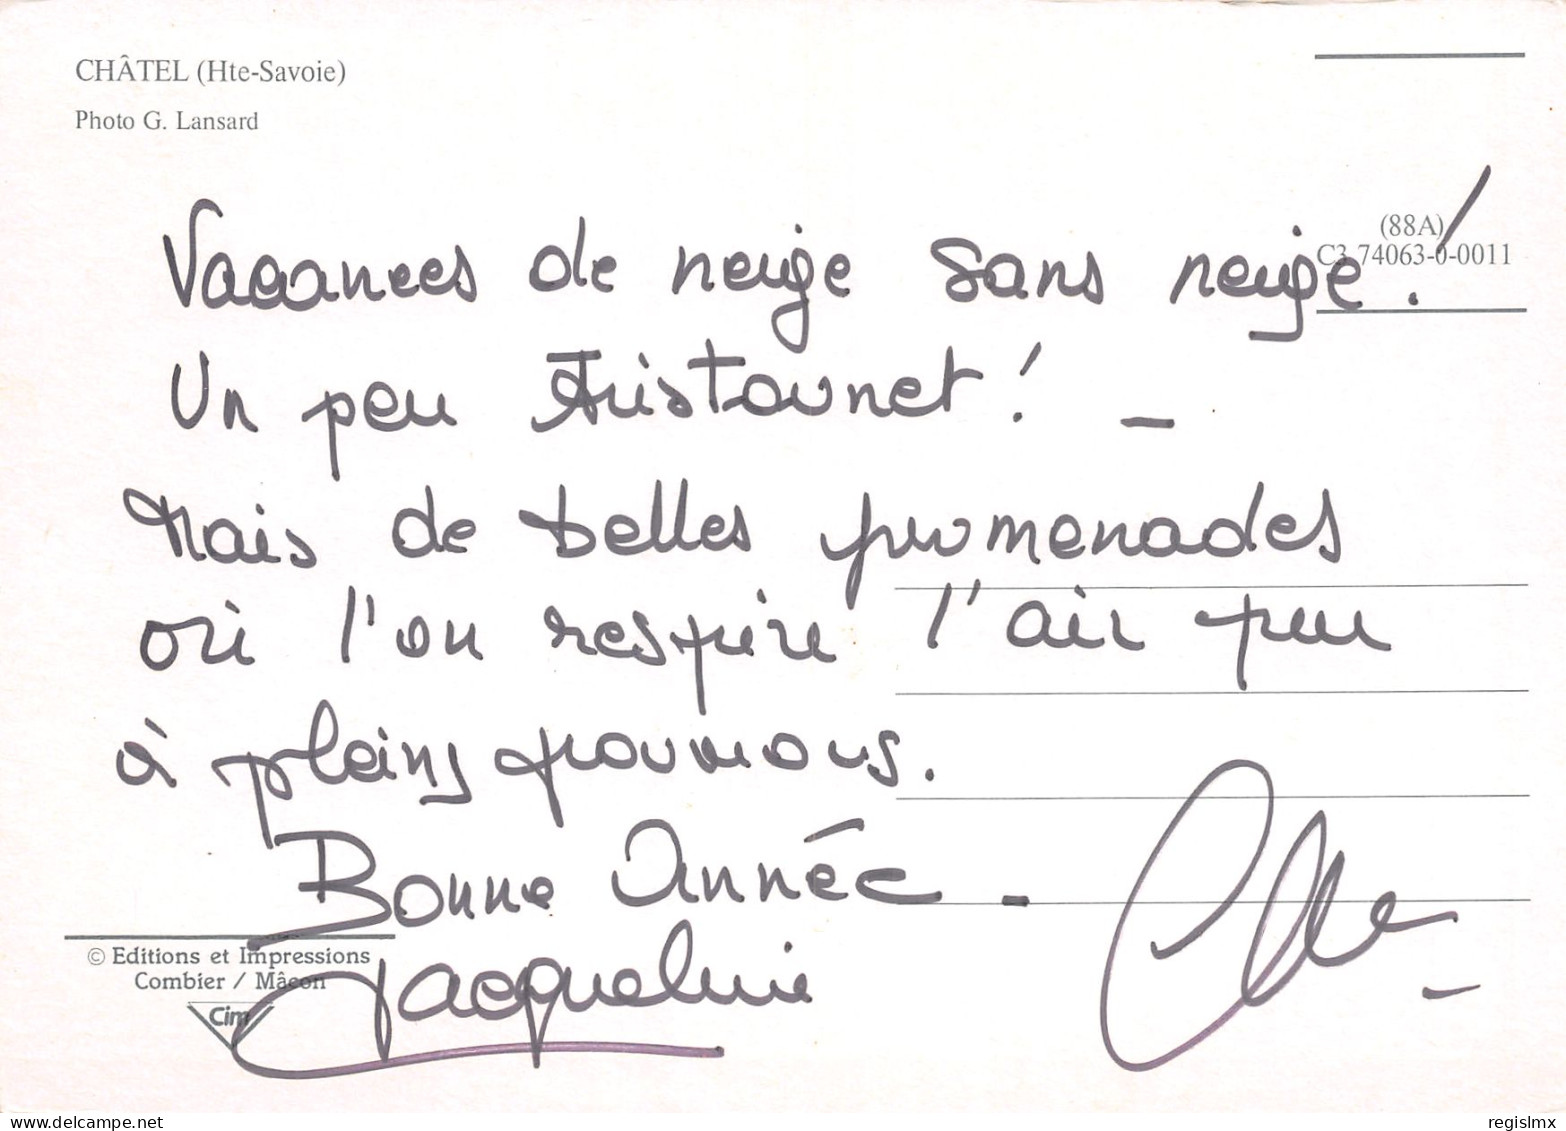 CHÂTEL (Hte-Savoie)
Photo G. Lansard
(88A)
C3 74063-0-0011
Vacances de neige sans neige !
Un peu tristounet ! -
Mais de belles promenades
où l'on respire l'air pur
à pleins poumons.
Bonne Année -
Jacqueline
© Editions et Impressions
Combier / Mâcon
Cim
www.delcampe.net
regislmx